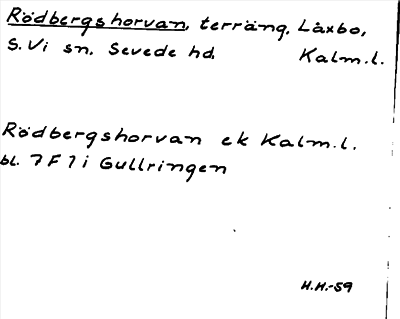 Rödbergshorvan, terräng, Låxbo,
S. Vi sn. Sevede hd. Kalm.l.
Rödbergshorvan ek Kalm.l.
bl. 7 F 7 i Gullringen
H.H.-59